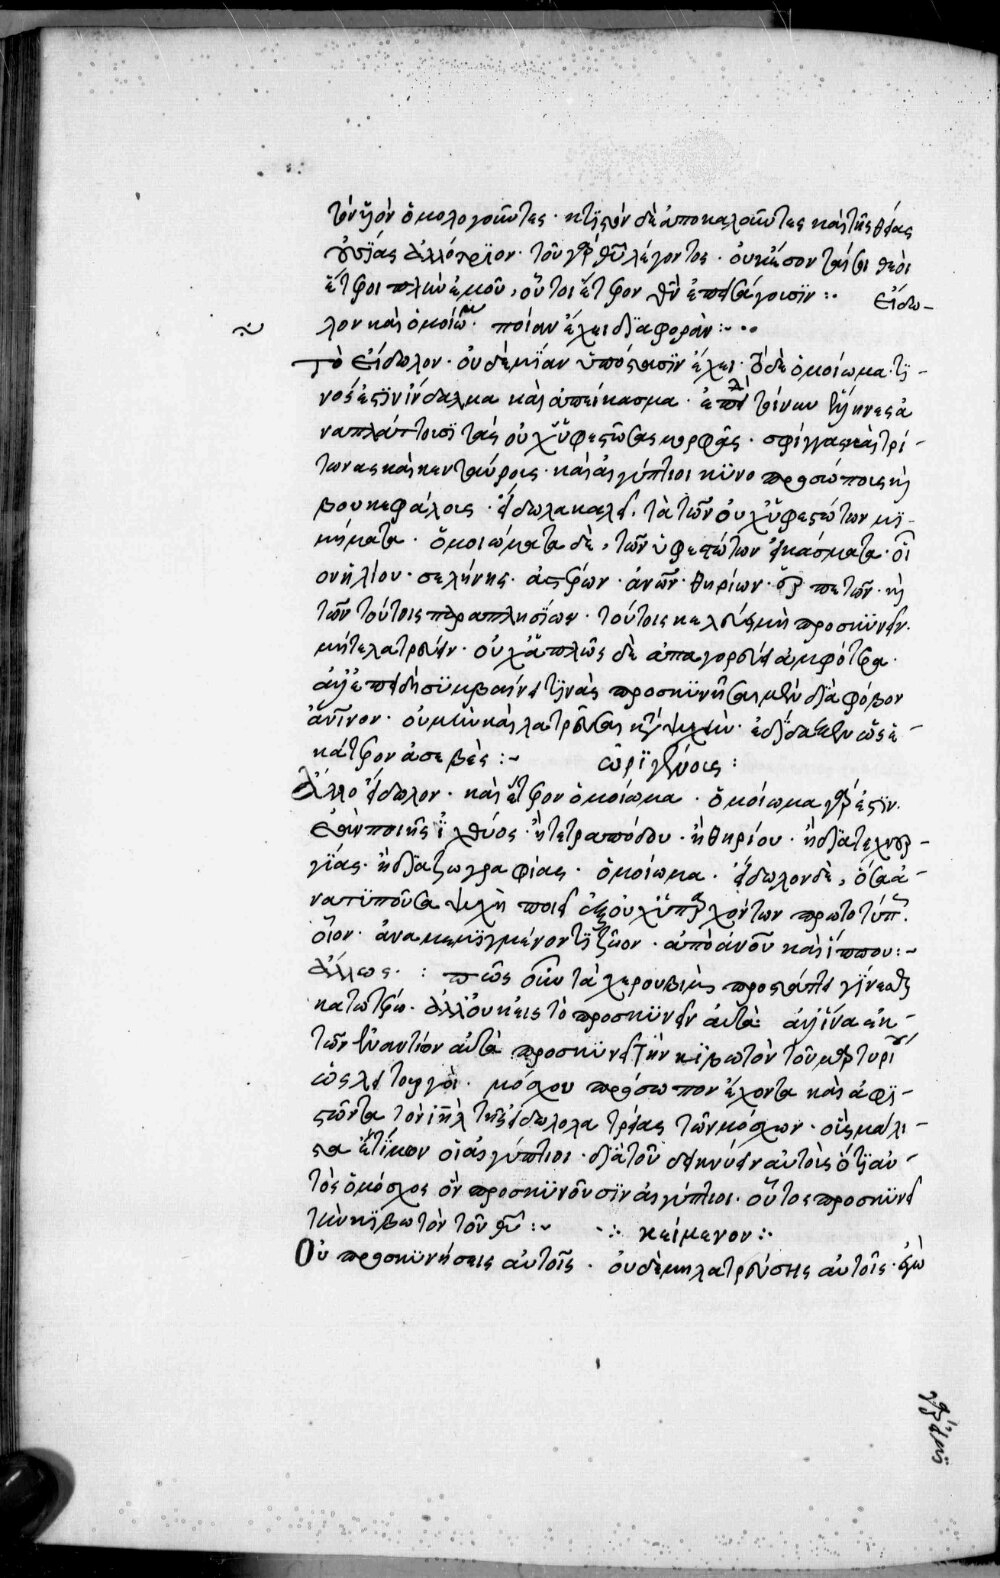 τὸν υἱὸν ὁμολογοῦντες · κτιστὸν δὲ ἀποκαλοῦντες καὶ τῆς θείας
οὐσίας ἀλλότριον · τοῦ γὰρ θῦ λέγοντος · οὐκ ἔσονταί σοι θεοὶ
ἕτεροι πλὴν ἐμοῦ, οὗτοι ἕτερον θν ἐπεισάγουσιν :· εἴδω-
λον καὶ ὁμοίωμα · ποίαν ἔχει διαφοράν :-
Τὸ εἴδωλον · οὐδεμίαν ὑπόστασιν ἔχει · τὸ δὲ ὁμοίωμα τι-
νός ἐστιν ἴνδαλμα καὶ ἀπείκασμα · ἐπεὶ τοίνυν ἕλληνες ἀ
ναπλάττουσι τὰς οὐχ ὑφεστώσας μορφὰς · σφίγγας καὶ τρί-
τωνας καὶ κενταύρους · καὶ αἰγύπτιοι κυνοπροσώπους καὶ
βουκεφάλους · εἴδωλα καλεῖ · τὰ τῶν οὐχ ὑφεστώτων μι-
μήματα · ὁμοιώματα δὲ, τῶν ὑφεστώτων εἰκάσματα · οἷ
ον ἡλίου · σελήνης · ἀστέρων · ἀνῶν · θηρίων · ἑρπετῶν · καὶ
τῶν τούτοις παραπλησίων · τούτοις κελεύει μὴ προσκυνεῖν ·
μήτε λατρεύειν · οὐχ ἁπλῶς δὲ ἀπαγορεύει ἀμφότερα ·
ἀλλ' ἐπειδὴ συμβαίνει τινὰς προσκυνῆσαι μὲν διὰ φόβον
ἀνινον · οὐ μὴν καὶ λατρεῦσαι κατὰ ψυχὴν · ἐδίδαξεν ὡς ἑ-
κάτερον ἀσεβές :- ὠριγένους :
Ἄλλο εἴδωλον · καὶ ἕτερον ὁμοίωμα · ὁμοίωμα γάρ ἐστιν ·
ἐὰν ποιῇς ἰχθύος · ἢ τετραπόδου · ἢ θηρίου · ἢ διὰ τεχνουρ-
γίας · ἢ διὰ ζωγραφίας · ὁμοίωμα · εἴδωλον δὲ, ὅσα ἀ-
νατυποῦσα ψυχὴ ποιεῖ ἐξ οὐχ ὑπαρχόντων πρωτοτύπων
οἷον · ἀναμεμιγμένον τι ζῶον · ἀπὸ ἀνοῦ καὶ ἵππου :-
Ἄλλως · : πῶς οὖν τὰ χερουβὶμ προστάττει γίνεσθαι
κατωτέρω · ἀλλ' οὐκ εἰς τὸ προσκυνεῖν αὐτὰ · ἀλλ' ἵνα ἐκ
τῶν ἐναντίων αὐτὰ προσκυνεῖ τὴν κιβωτὸν τοῦ μαρτυρίου
ὡς λειτουργοὶ · μόσχου πρόσωπον ἔχοντα καὶ ἀφι-
στῶντα τὸν ἰηλ τῆς εἰδωλολατρείας τῶν μόσχων · οἷς μάλι-
στα ἐτίμων οἱ αἰγύπτιοι · διὰ τοῦ δεικνύειν αὐτοῖς ὅτι αὐ-
τὸς ὁ μόσχος ὃν προσκυνοῦσιν αἰγύπτιοι · οὗτος προσκυνεῖ
τὴν κιβωτὸν τοῦ θῦ :- ·:· κείμενον :·
Οὐ προσκυνήσεις αὐτοῖς · οὐδὲ μὴ λατρεύσῃς αὐτοῖς · ἐγὼ